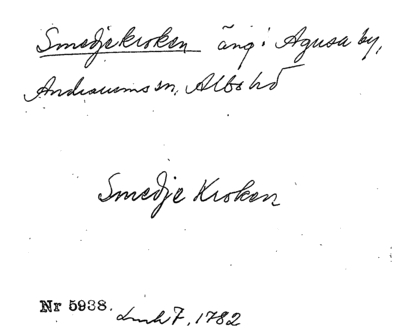 Smedjekroken äng i Agusa by,
Andrarums sn, Albo hd
Smedje Kroken
Nr 5938.
Lmh 7, 1782